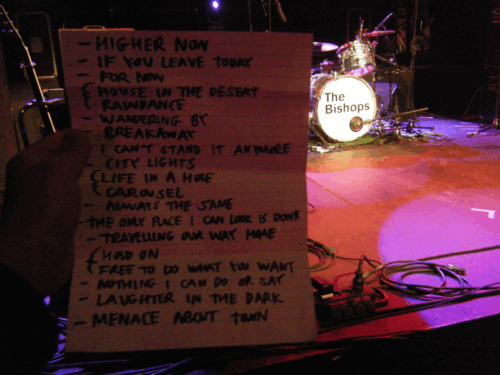 - HIGHER NOW
- IF YOU LEAVE TODAY
- FOR NOW
HOUSE IN THE DESERT
RAINDANCE
- WANDERING BY
BREAKAWAY
- I CAN'T STAND IT ANYMORE
- CITY LIGHTS
LIFE IN A HOLE
CAROUSEL
- ALWAYS THE SAME
- THE ONLY PLACE I CAN LOOK IS DOWN
- TRAVELLING OUR WAY HOME
HOLD ON
FREE TO DO WHAT YOU WANT
- NOTHING I CAN DO OR SAY
- LAUGHTER IN THE DARK
- MENACE ABOUT TOWN
The
Bishops